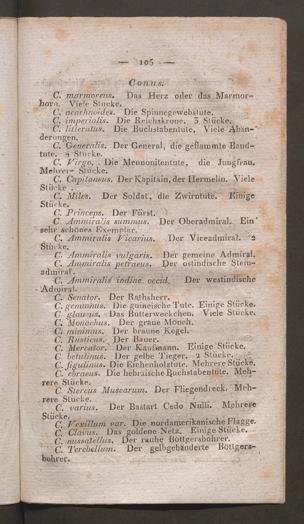 — 105 —
Conus.
C. marmoreus. Das Herz oder das Marmor-
horn. Viele Stücke.
C. arachnoides. Die Spinnegewebstute.
C. imperialis. Die Reichskrone. 3 Stücke.
C. litteratus. Die Buchstabentute, Viele Abän-
derungen.
C. Generalis. Der General, die geflammte Band-
tute. Stücke.
C. Virgo. Die Mennonitentute, die Jungfrau.
Mehrere Stücke.
C. Capitaneus. Der Kapitain, der Hermelin. Viele
Stücke.
C. Miles. Der Soldat, die Zwirntute. Einige
Stücke.
C. Princeps. Der Fürst.
C Ammiralis summus. Der Oberadmiral. Ein
sehr schönes Exemplar.
C. Ammiralis Vicarius. Der Viceadmiral. 2
Stücke.
C. Ammiralis vulgaris. Der gemeine Admiral.
C. Ammiralis petraeus. Der ostindische Stein-
admiral.
C. Ammiralis indiae occid. Der westindische
Admiral.
C. Senator. Der Rathsherr.
C. genuinus. Die guineische Tute. Einige Stücke.
C. glaucus. Das Butterweckchen. Viele Stücke.
C. Monachus. Der graue Mönch.
C. minimus. Der braune Kegel.
C. Rusticus. Der Bauer.
C. Mercator. Der Kaufmann. Einige Stücke.
C. betulinus. Der gelbe Tieger. 2 Stücke.
C. figulinus. Die Kirchenholztute. Mehrere Stücke.
C. ebraeus. Die hebräische Buchstabentute. Meh-
rere Stücke.
C Stercus Muscarum. Der Fliegendreck. Meh-
rere Stücke.
C. varius. Der Bastart Cedo Nulli. Mehrere
Stücke.
C. Vexillum var. Die nordamerikanische Flagge.
C. Clavus. Das goldene Netz. Einige Stücke.
C. nussatellus. Der rauhe Böttgersbohrer.
C. Terebellum. Der gelbgebänderte Böttgers-
bohrer.